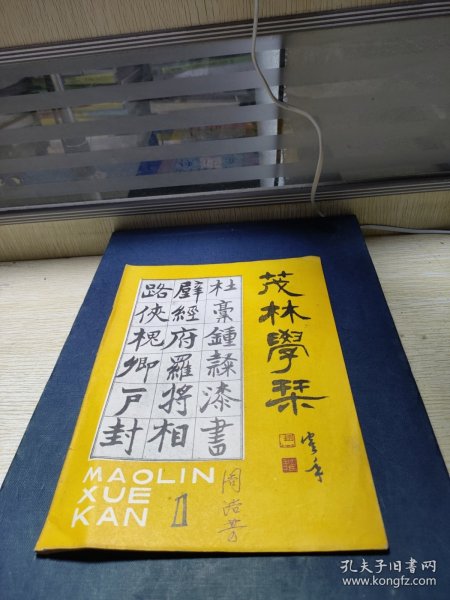 茂林學栞
杜稾鍾隸漆書
壁經府羅將相
路俠槐卿户封
MAOLIN
XUE
KAN
1
孔夫子旧书网
www.kongfz.com